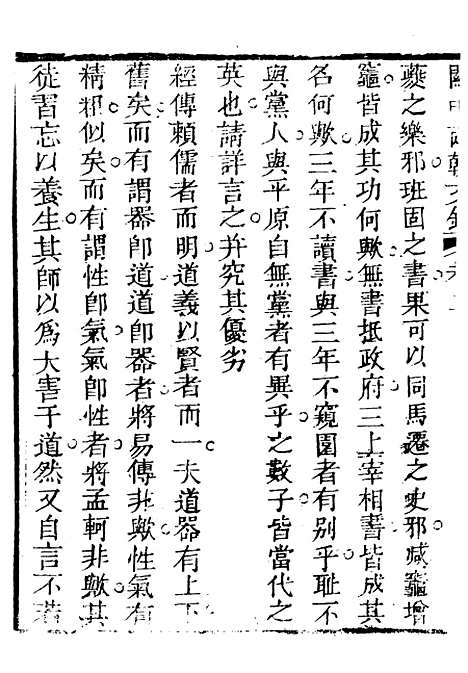 夔之樂邪班固之書果可以同馬遷之史邪减竈增
竈皆成其功何歟無書抵政府三上宰相書皆成其
名何歟三年不讀書與三年不窺園者有别乎耻不
與黨人與平原自無黨者有異乎之數子皆當代之
英也請詳言之并究其優劣
經傳賴儒者而明道義以賢者而一夫道器有上下
舊矣而有謂器卽道道卽器者將易傳非歟性氣有
精粗似矣而有謂性卽氣氣卽性者將孟軻非歟其
徒習忘以養生其師以爲大害于道然又自言不若